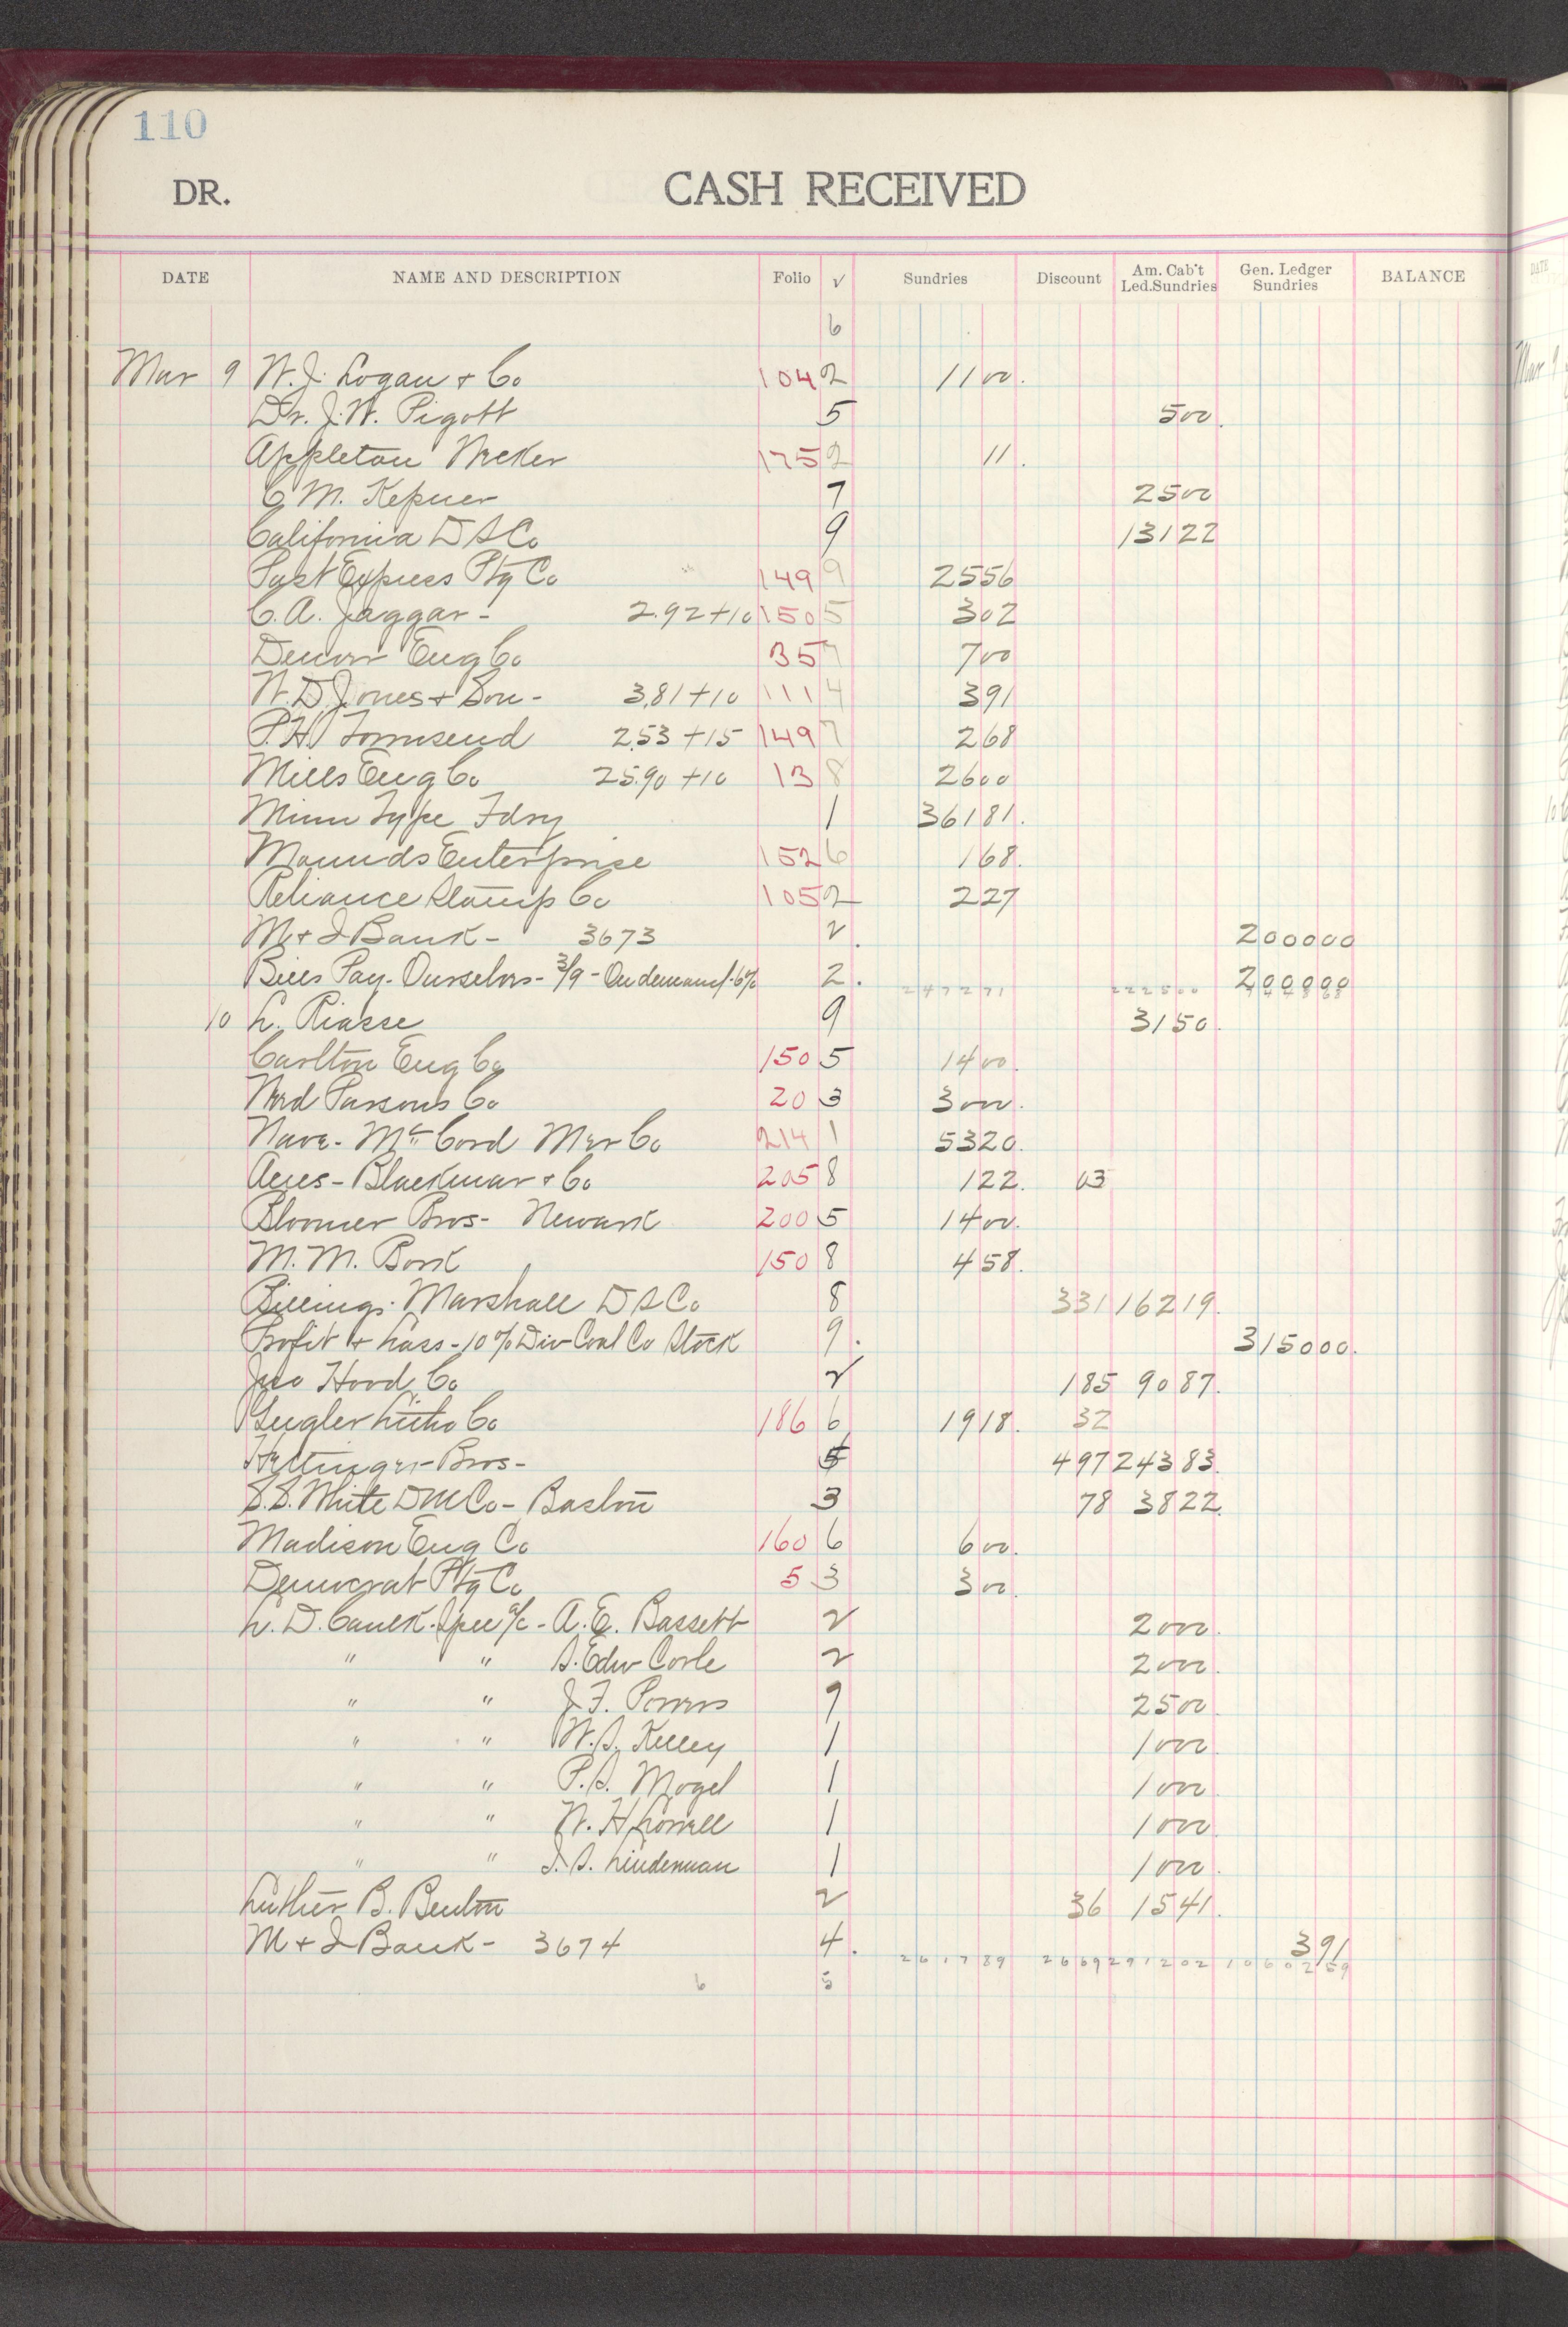 110
DR. CASH RECEIVED
DATE NAME AND DESCRIPTION Folio √ Sundries Discount Am. Cab't Led. Sundries Gen. Ledger Sundries BALANCE
6
Mar 9 W. J. Logan + Co 104 2 1100.
Dr. J. W. Pigott 5 500.
Appleton 175 2 11.
C M. Kepner 7 2500
California D S Co 9 13122
Post Express Ptg Co 149 9 2556
C. A. Jaggar - 2.92 + 10 150 5 302
Denver Eng Co 35 7 700
W. D. Jones + Son - 3.81 + 10 111 4 391
P. H. Townsend 2.53 + 15 149 7 268
Mills Eng Co 25.90 + 10 13 8 2600
Minn Type Fdry 1 36181.
Mounds Enterprise 152 6 168.
Reliance Stamp Co 105 2 227
M + J Bank - 3673 2. 200000
Bills Pay. Ourselves - 3/9 - On demand - 6% 2. 247271 222500 200000
10 L. Riasse 9 3150.
Carlton Eng Co 150 5 1400.
Parsons Co 20 3 3000.
Nave - McCord Mer Co 214 1 5320.
Blackmar + Co 205 8 122. 03
Bloomer Bros - Newark 200 5 1400.
M. M. Bork 150 8 458.
Billings. Marshall D S Co 8 331 16219.
Profit + Loss - 10% Div Coal Co Stock 9. 315000.
Jno Hood Co 2 185 9087.
Gugler Litho Co 186 6 1918. 32
Hettinger Bros - 5 497 24383.
S. S. White D M Co - Boston 3 78 3822.
Madison Eng Co 160 6 600.
Democrat Ptg Co 5 3 300.
L. D. Caulk. Spec a/c - A. E. Bassett 2 2000.
" " S. Edw Corle 2 2000.
" " J. F. Powers 9 2500.
" " W. S. Kelley 1 1000.
" " P. S. Mogel 1 1000.
" " W. H. Lowell 1 1000.
" " J. S. Lindenman 1 1000.
Luther B. Benton 2 36 1541.
M + J Bank - 3674 4. 261789 2669 291202 1060259 391
6 5